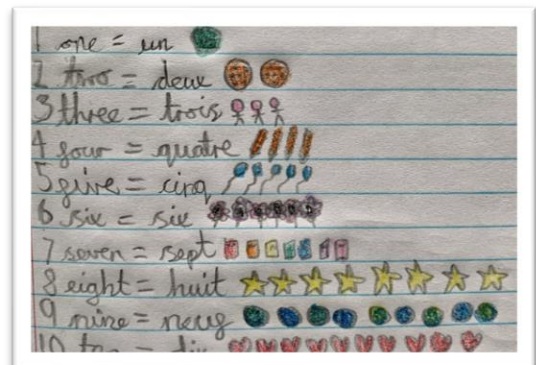 1 one = un
2 two = deux
3 three = trois
4 four = quatre
5 five = cinq
6 six = six
7 seven = sept
8 eight = huit
9 nine = neuf
10 ten = dix